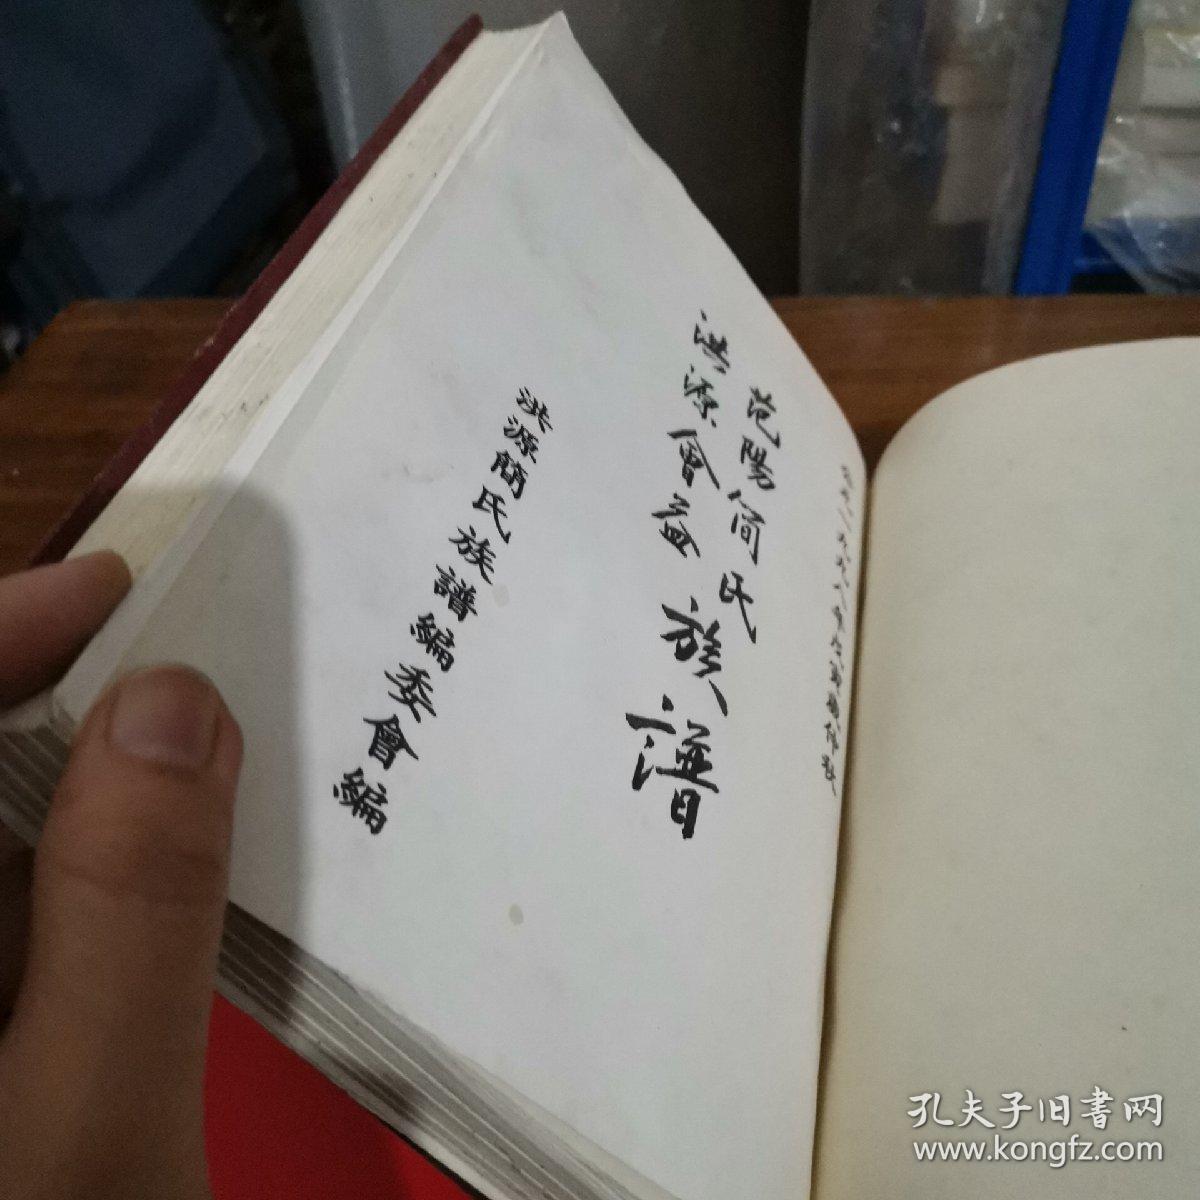 范陽简氏
洪源會益族譜
洪源簡氏族譜編委會編
孔夫子旧書网
www.kongfz.com